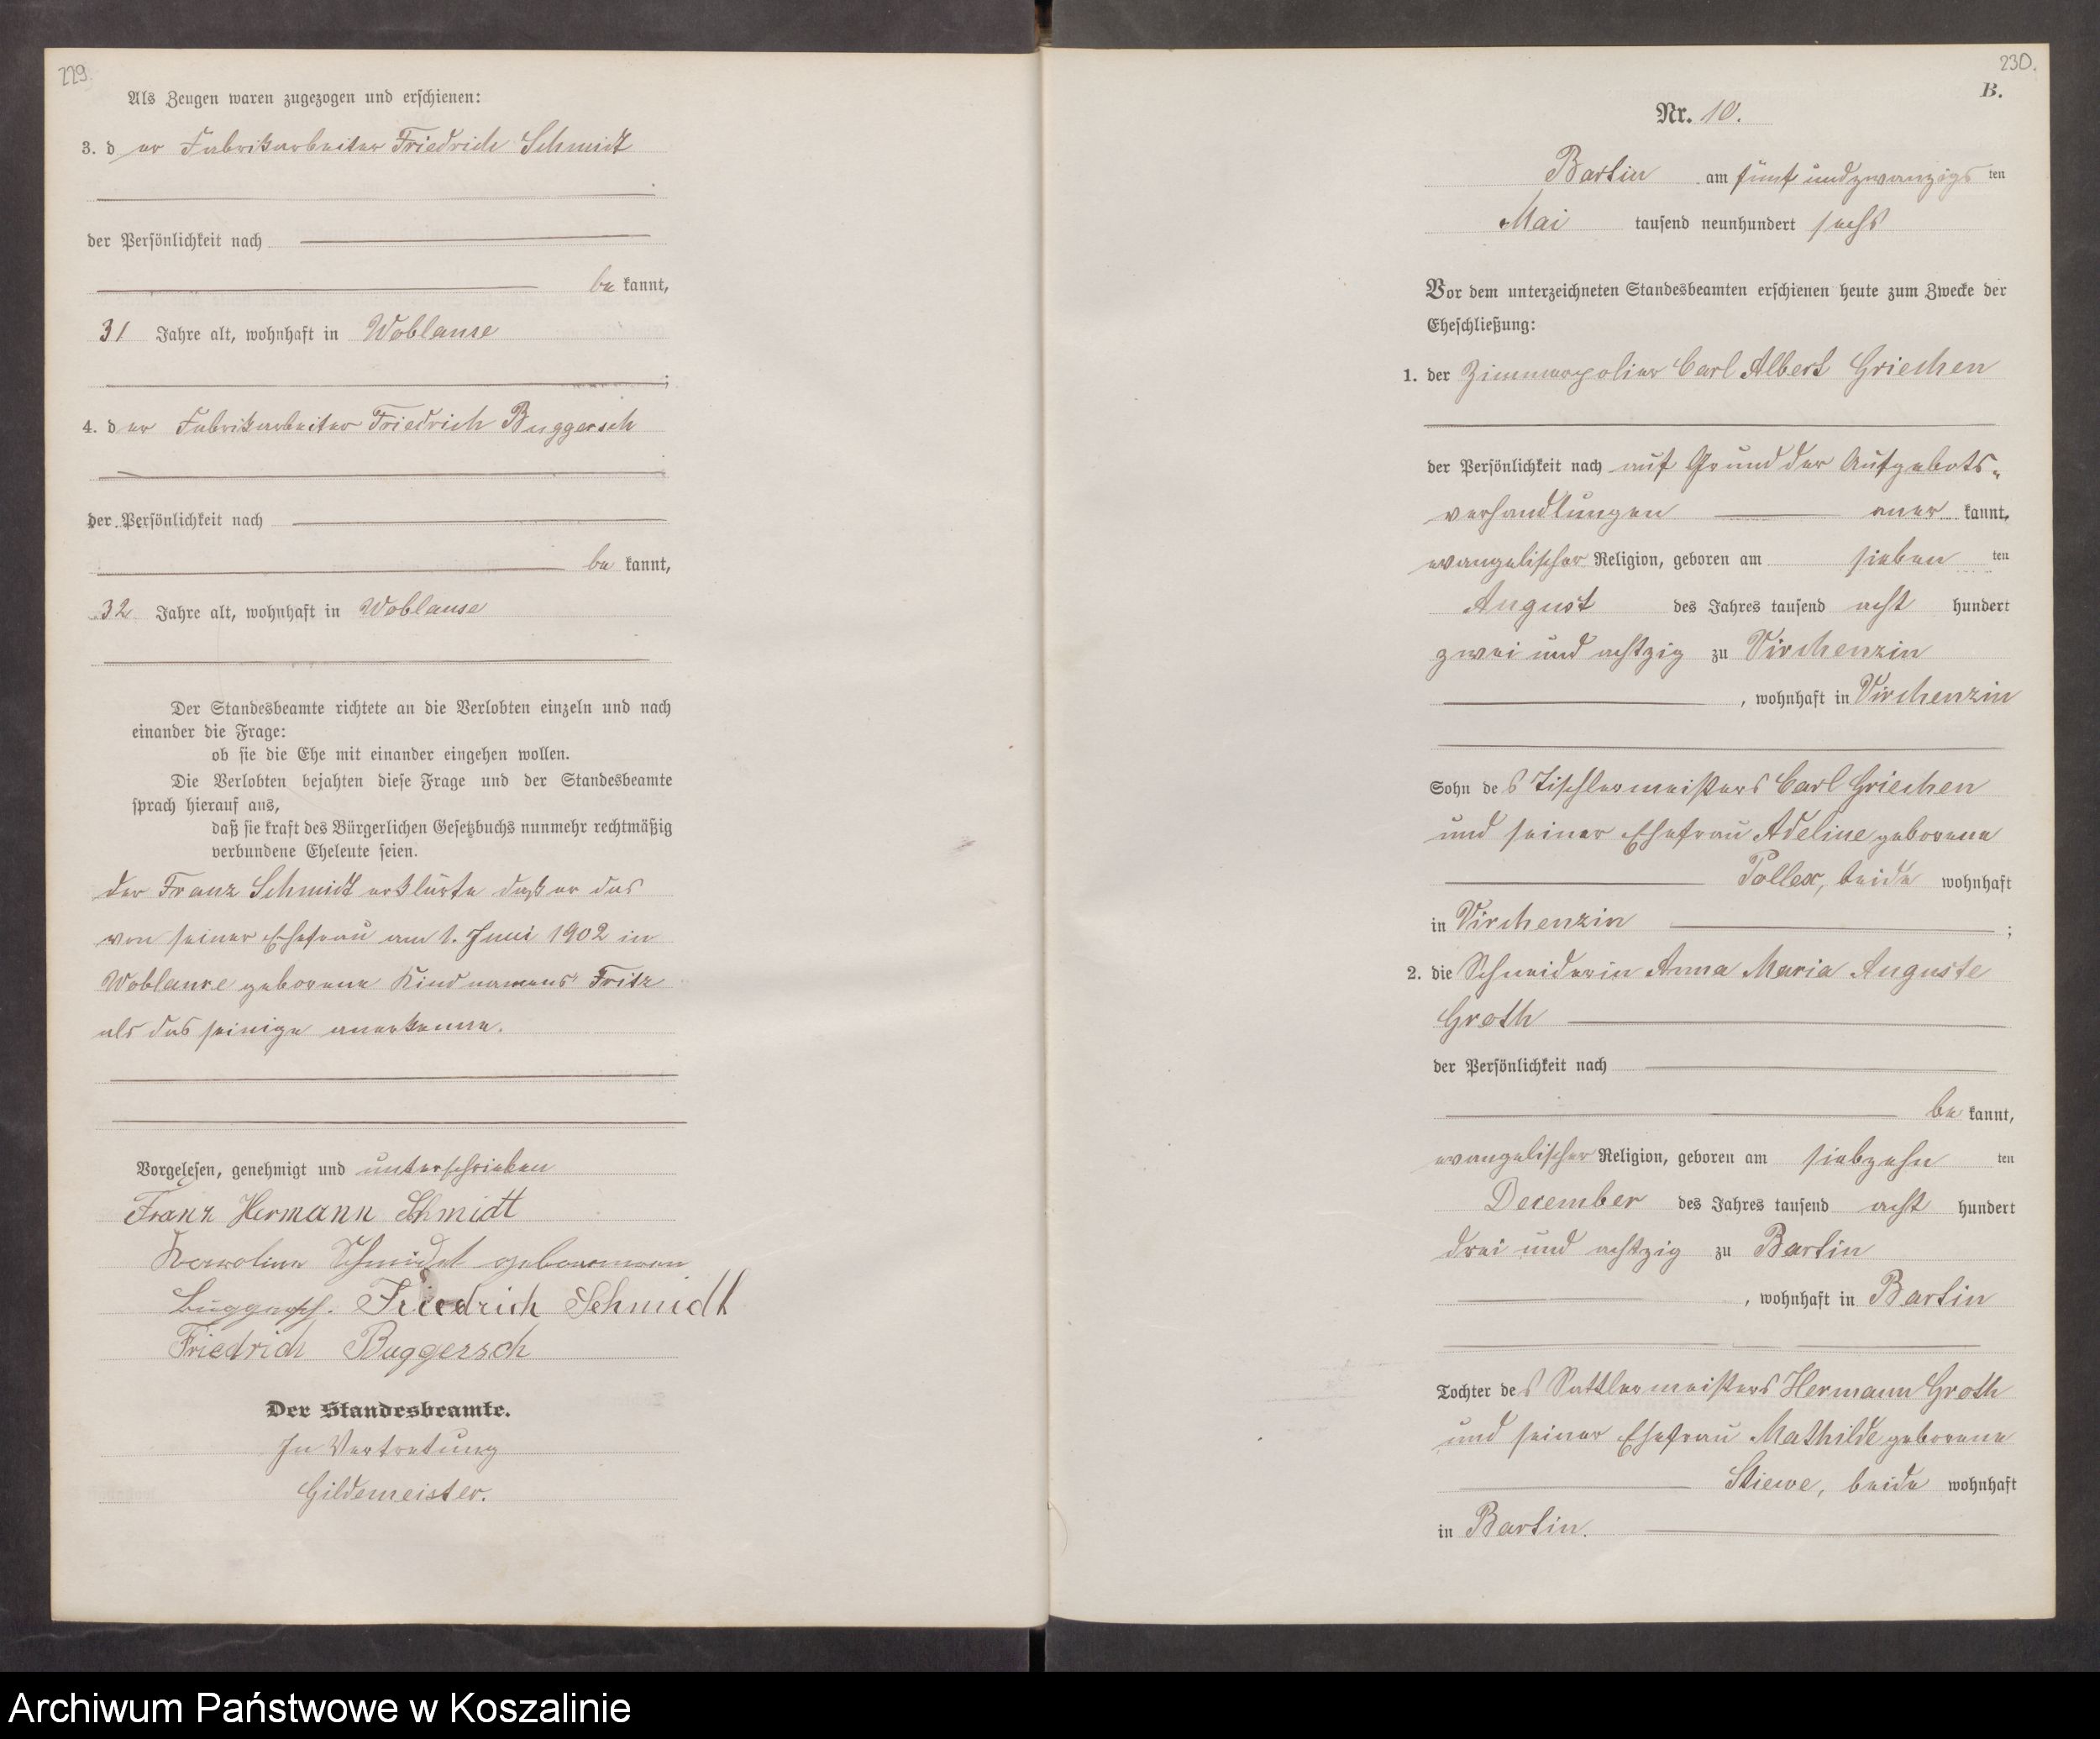 229.
Als Zeugen waren zugezogen und erschienen:
3. der Fabrikarbeiter Friedrich Schmidt
der Persönlichkeit nach
be kannt,
31 Jahre alt, wohnhaft in Woblanse
4. der Fabrikarbeiter Friedrich Buggersch
der Persönlichkeit nach
be kannt,
32 Jahre alt, wohnhaft in Woblanse
Der Standesbeamte richtete an die Verlobten einzeln und nach
einander die Frage:
ob sie die Ehe mit einander eingehen wollen.
Die Verlobten bejahten diese Frage und der Standesbeamte
sprach hierauf aus,
daß sie kraft des Bürgerlichen Gesetzbuchs nunmehr rechtmäßig
verbundene Eheleute seien.
Der Franz Schmidt erklärte daß er das
von seiner Ehefrau am 1. Juni 1902 in
Woblanse geborene Kind namens Fritz
als das seinige anerkenne.
Vorgelesen, genehmigt und unterschrieben
Franz Hermann Schmidt
Karoline Schmidt geborenen
Buggersch. Friedrich Schmidt
Friedrich Buggersch
Der Standesbeamte.
In Vertretung
Gildemeister.
230.
B.
Nr. 10.
Bartin am fünf und zwanzigs ten
Mai tausend neunhundert sechs
Vor dem unterzeichneten Standesbeamten erschienen heute zum Zwecke der
Eheschließung:
1. der Zimmerpolier Carl Albert Griechen
der Persönlichkeit nach auf Grund der Aufgebots-
verhandlungen aner kannt,
evangelischer Religion, geboren am sieben ten
August des Jahres tausend acht hundert
zwei und achtzig zu Virchenzin
, wohnhaft in Virchenzin
Sohn des Tischlermeisters Carl Griechen
und seiner Ehefrau Adeline geborene
Pollex, beide wohnhaft
in Virchenzin ;
2. die Schneiderin Anna Maria Auguste
Groth
der Persönlichkeit nach
be kannt,
evangelischer Religion, geboren am siebzehn ten
December des Jahres tausend acht hundert
drei und achtzig zu Bartin
, wohnhaft in Bartin
Tochter des Sattlermeisters Hermann Groth
und seiner Ehefrau Mathilde geborene
Stiewe, beide wohnhaft
in Bartin.
Archiwum Państwowe w Koszalinie